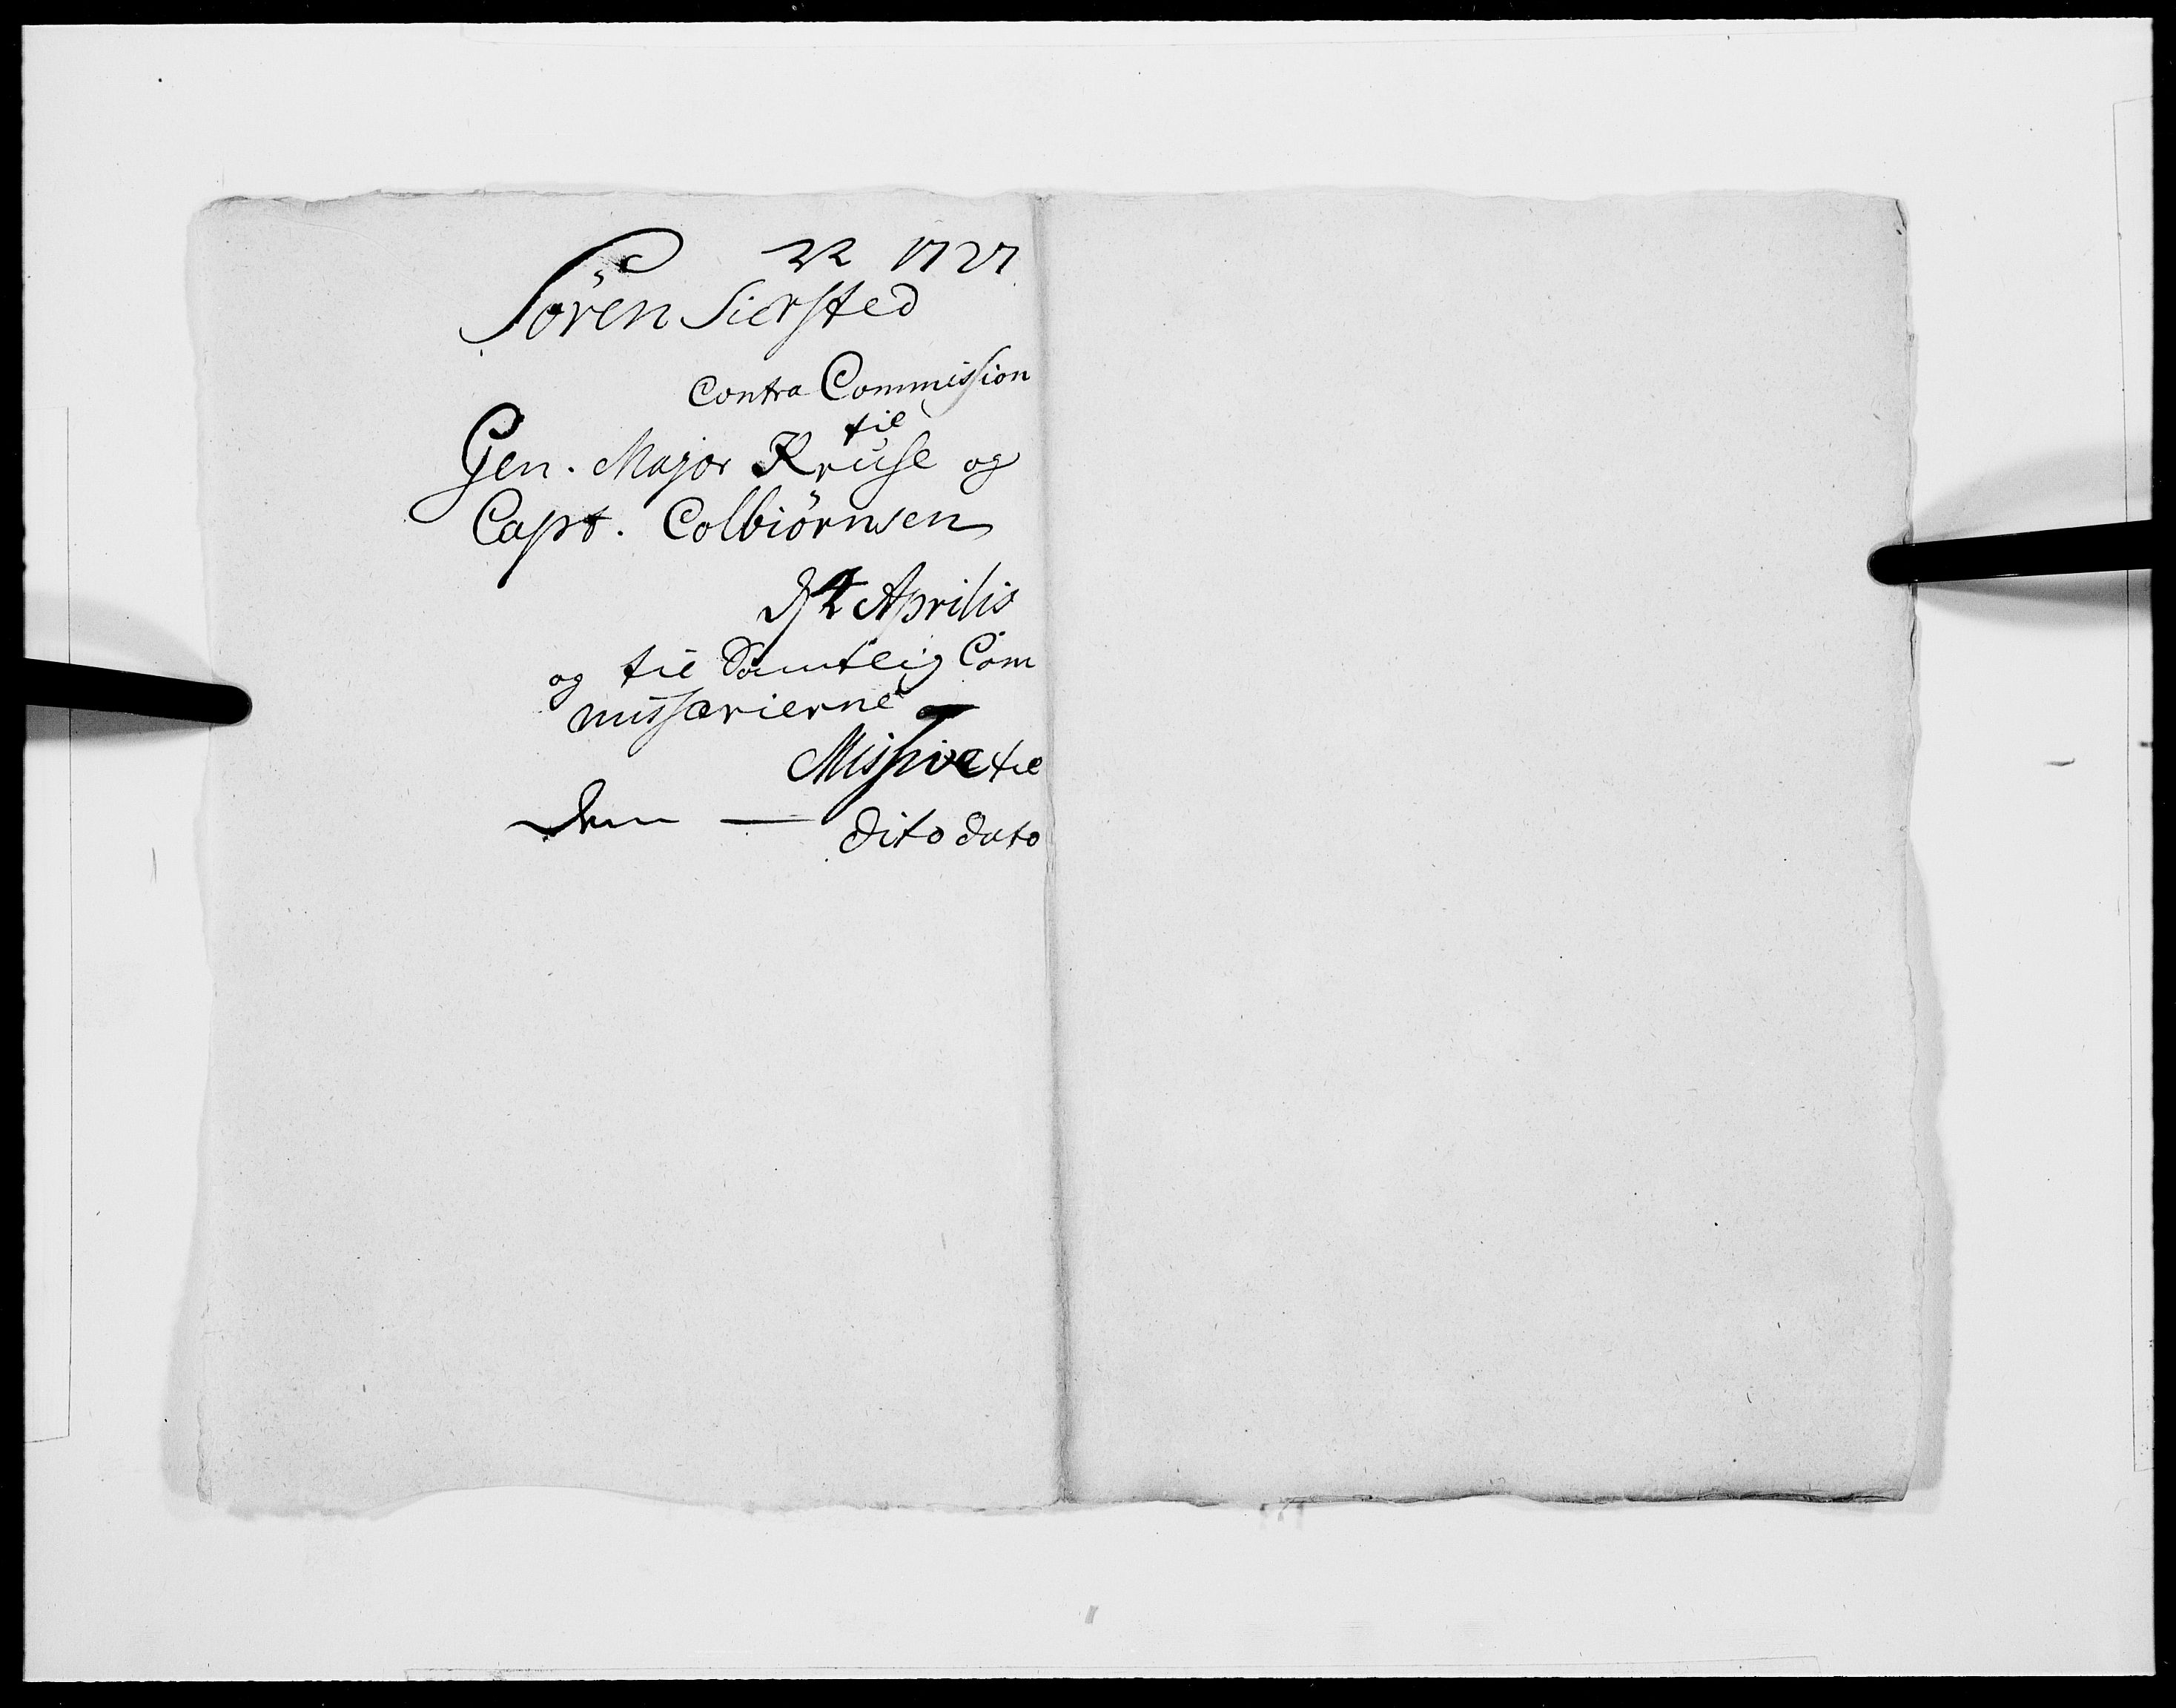 22 1727
Sören Siersted
Contra Commission
til
Gen. Major Kruse og
Capt. Colbiörnsen
d 4 Aprilis
og til Samtlig Com
missarierne
Missive til
dem — dito dato